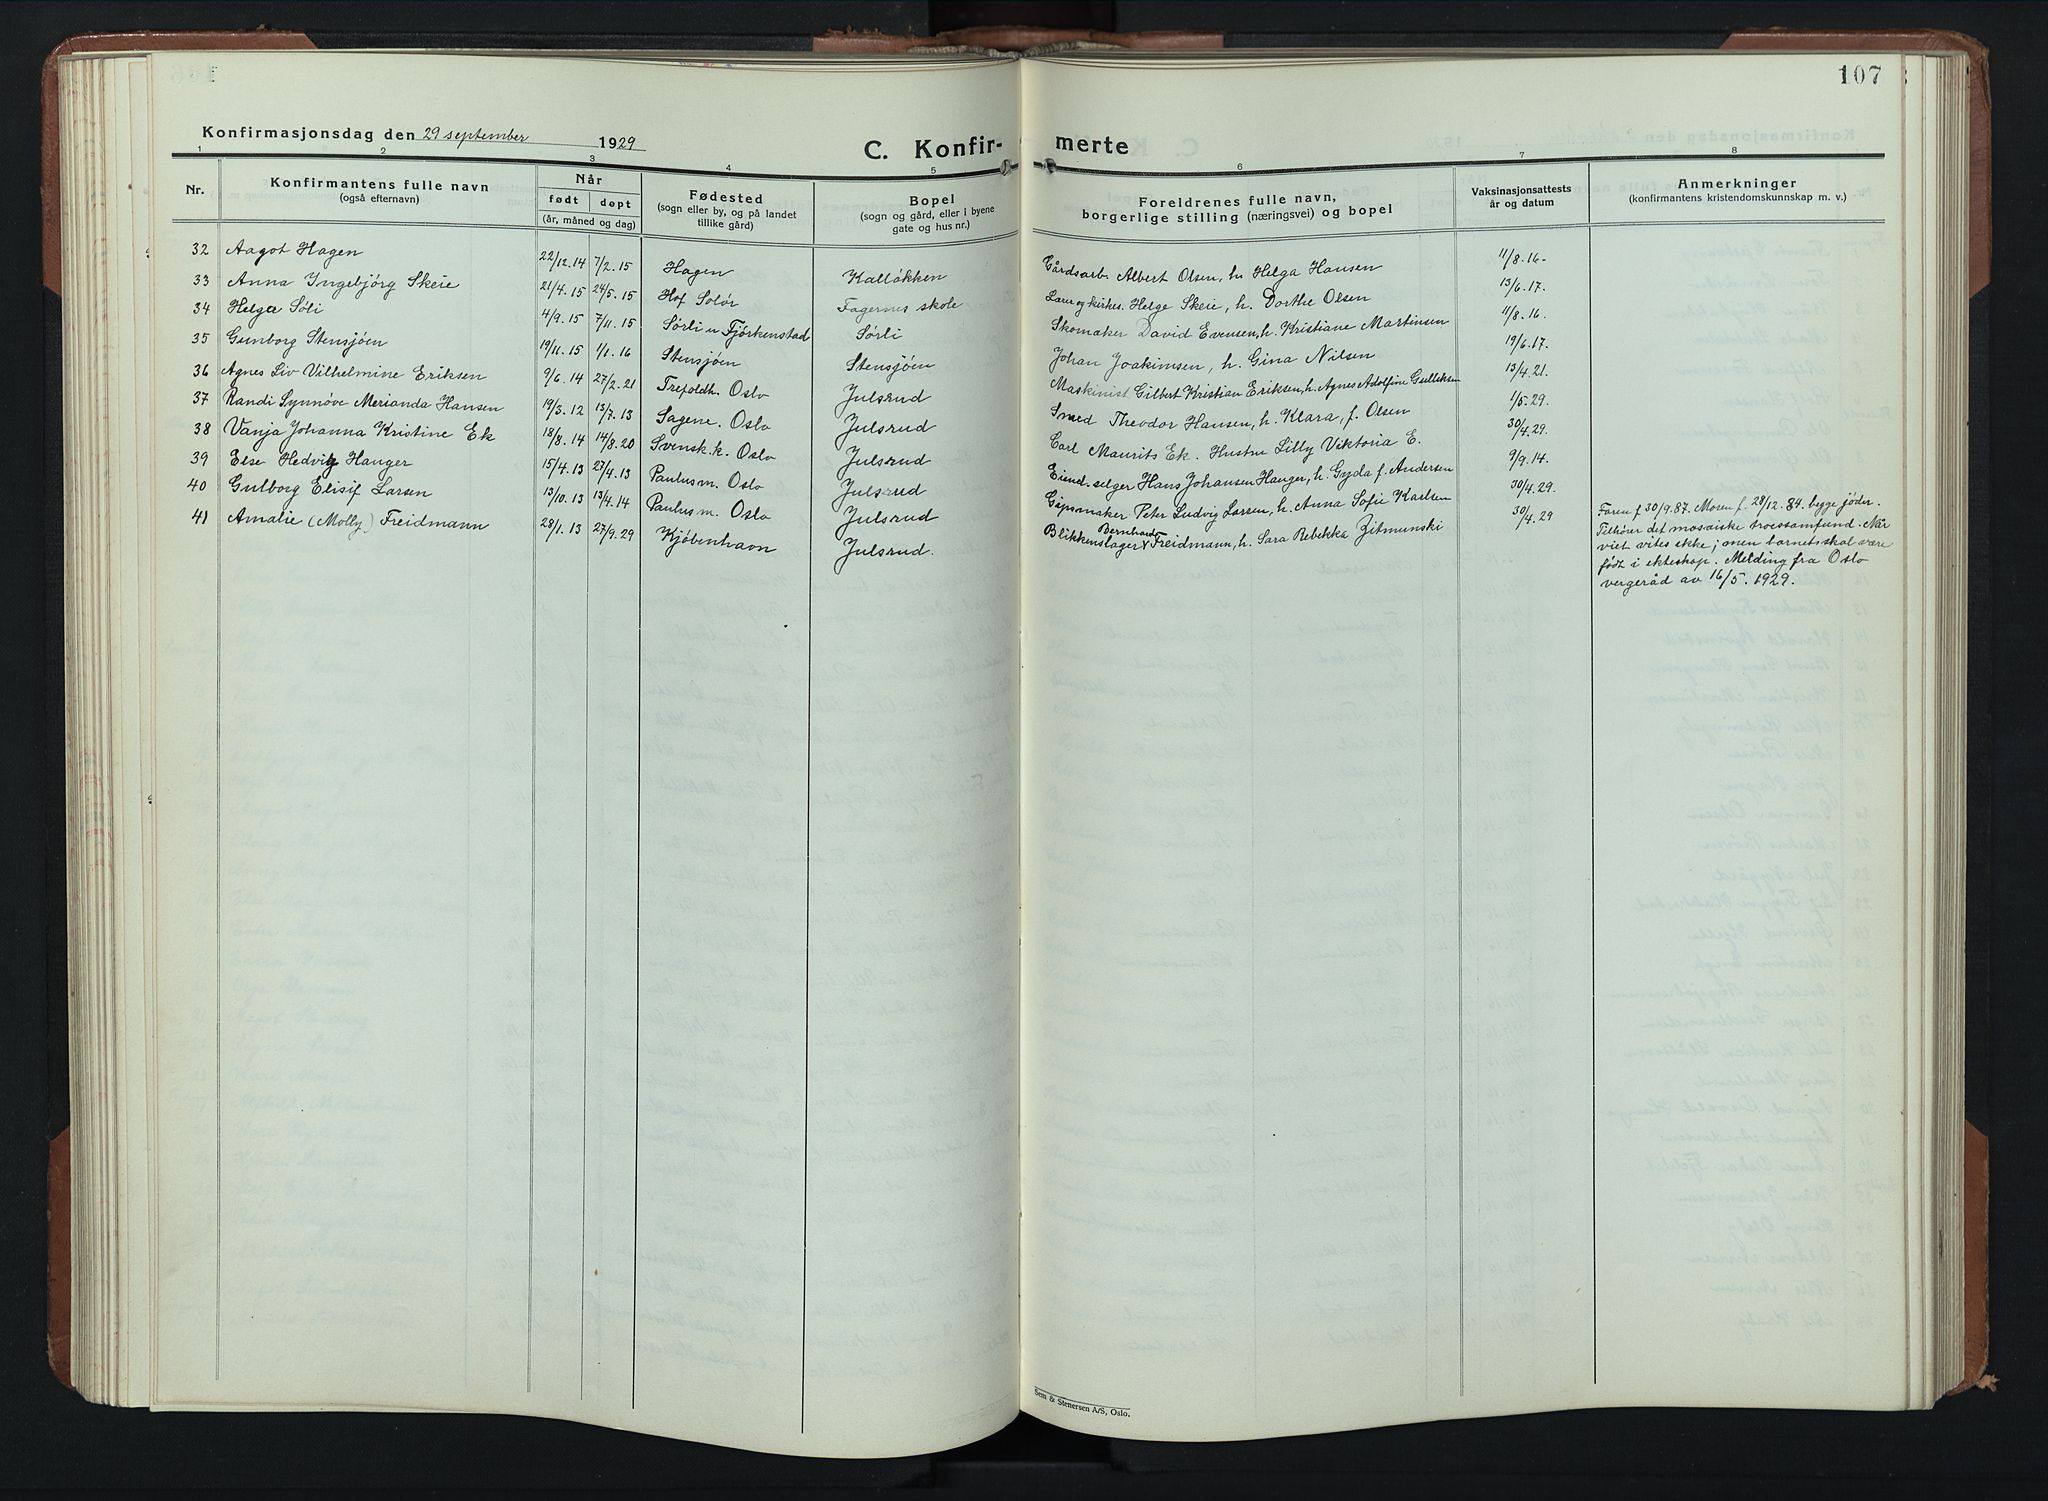 107
Konfirmasjonsdag den 29 september 1929
C. Konfir- merte
1 2 3 4 5 6 7 8
Nr.
Konfirmantens fulle navn
(også efternavn)
Når
født døpt
(år, måned og dag)
Fødested
(sogn eller by, og på landet
tillike gård)
Bopel
(sogn og gård, eller i byene
gate og hus nr.)
Foreldrenes fulle navn,
borgerlige stilling (næringsvei) og bopel
Vaksinasjonsattests
år og datum
Anmerkninger
(konfirmantens kristendomskunnskap m. v.)
32 Aagot Hagen 22/12.14 7/2.15 Hagen Kalbäkken Gårdsarb. Albert Olsen, h. Helga Hansen 11/8.16.-
33 Anna Ingebjørg Skeie 21/4.15 24/5.15 Hof Solør Fagernes skole Lærer og kirkes. Helge Skeie, h. Dorthe Olsen 13/6.17.
34 Helga Söli 4/9.15 7/11.15 Sørli u Fjørkenstad Sørli Skomaker David Evensen, h. Kristiane Martinsen 11/8.16.
35 Gunborg Stensjøen 19/11.15 1/1.16 Stensjøen Stensjøen Johan Joakimsen, h. Gina Nilsen 19/6.17.
36 Agnes Liv Vilhelmine Eriksen 9/6.14 27/2.21 Trefoldh. Oslo Julsrud Maskinist Gilbert Kristian Eriksen, h. Agnes Adolfine Gulliksen 13/4.21.
37 Randi Synnöve Merianda Hansen 19/3.12 13/7.13 Sagene. Oslo Julsrud Smed Theodor Hansen, h. Klara, f. Olsen 1/5.29.
38 Vanja Johanna Kristine Ek 18/8.14 14/8.20 Svensk. k. Oslo Julsrud Carl Maurits Ek. Hustru Lilly Viktoria E. 30/4.29.
39 Else Hedvig Hanger 15/4.13 27/4.13 Paulus m. Oslo Julsrud Eiend. selger Hans Johansen Hanger, h. Gyda f. Andersen 9/9.14.
40 Gulborg Elisif Larsen 13/10.13 13/4.14 Paulus m. Oslo Julsrud Gipsmaker Peter Ludvig Larsen, h. Anna Sofie Karlsen 30/4.29.
41 Amalie (Molly) Freidmann 28/1.13 27/9.29 Kjöbenhavn Julsrud. Blikkenslager Bernhard Freidmann, h. Sara Rebekka Zitmunski 30/4.29
Faren f. 30/9.87. Moren f. 28/12.84. begge jøder.
Tilhører det mosaiske troessamfund. Når
viet vites ikke; men barnet skal være
født i ekteskap. Melding fra Oslo
vergeråd av 16/5.1929.
Sem & Stenersen A/S, Oslo.